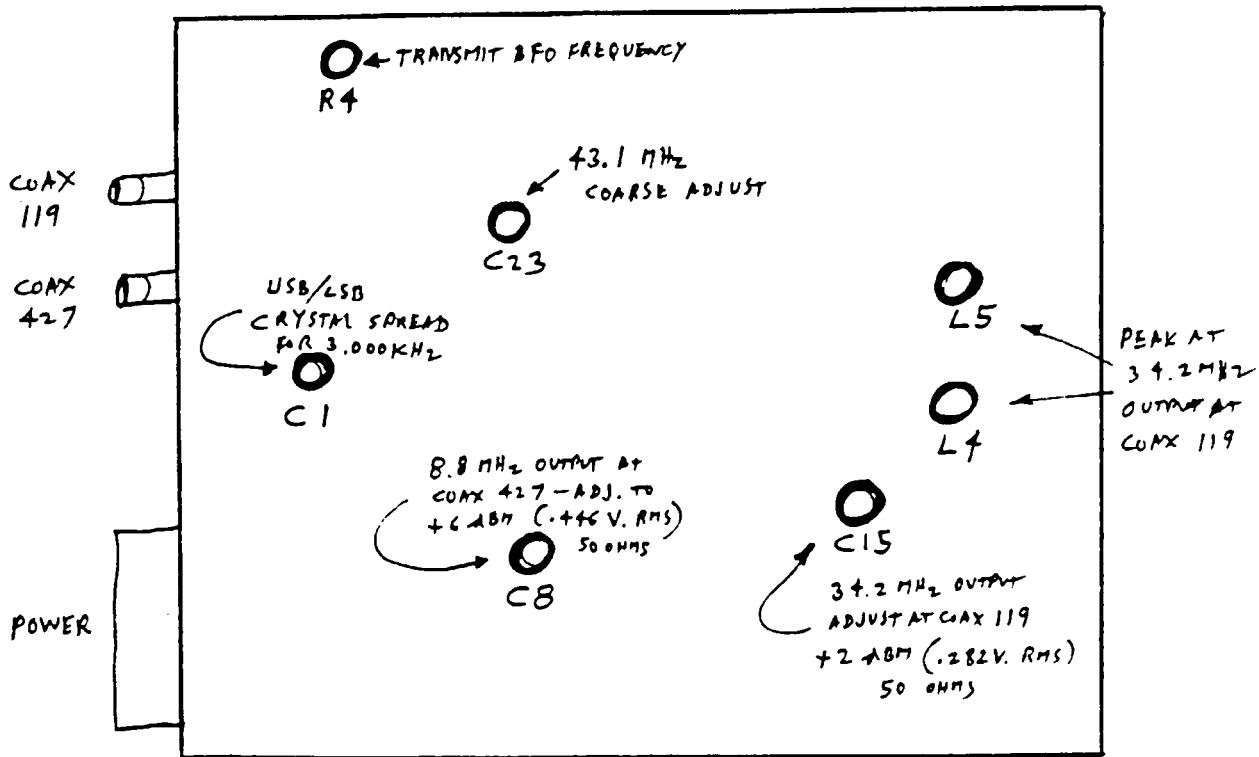 TRANSMIT BFO FREQUENCY
R4
43.1 MHz
COARSE ADJUST
C23
COAX
119
COAX
427
USB/LSB
CRYSTAL SPREAD
FOR 3.000KHz
C1
L5
L4
PEAK AT
34.2 MHz
OUTPUT AT
COAX 119
8.8 MHz OUTPUT AT
COAX 427 - ADJ. TO
+6 dBM (.446 V. RMS)
50 OHMS
C8
C15
34.2 MHz OUTPUT
ADJUST AT COAX 119
+2 dBM (.282V. RMS)
50 OHMS
POWER